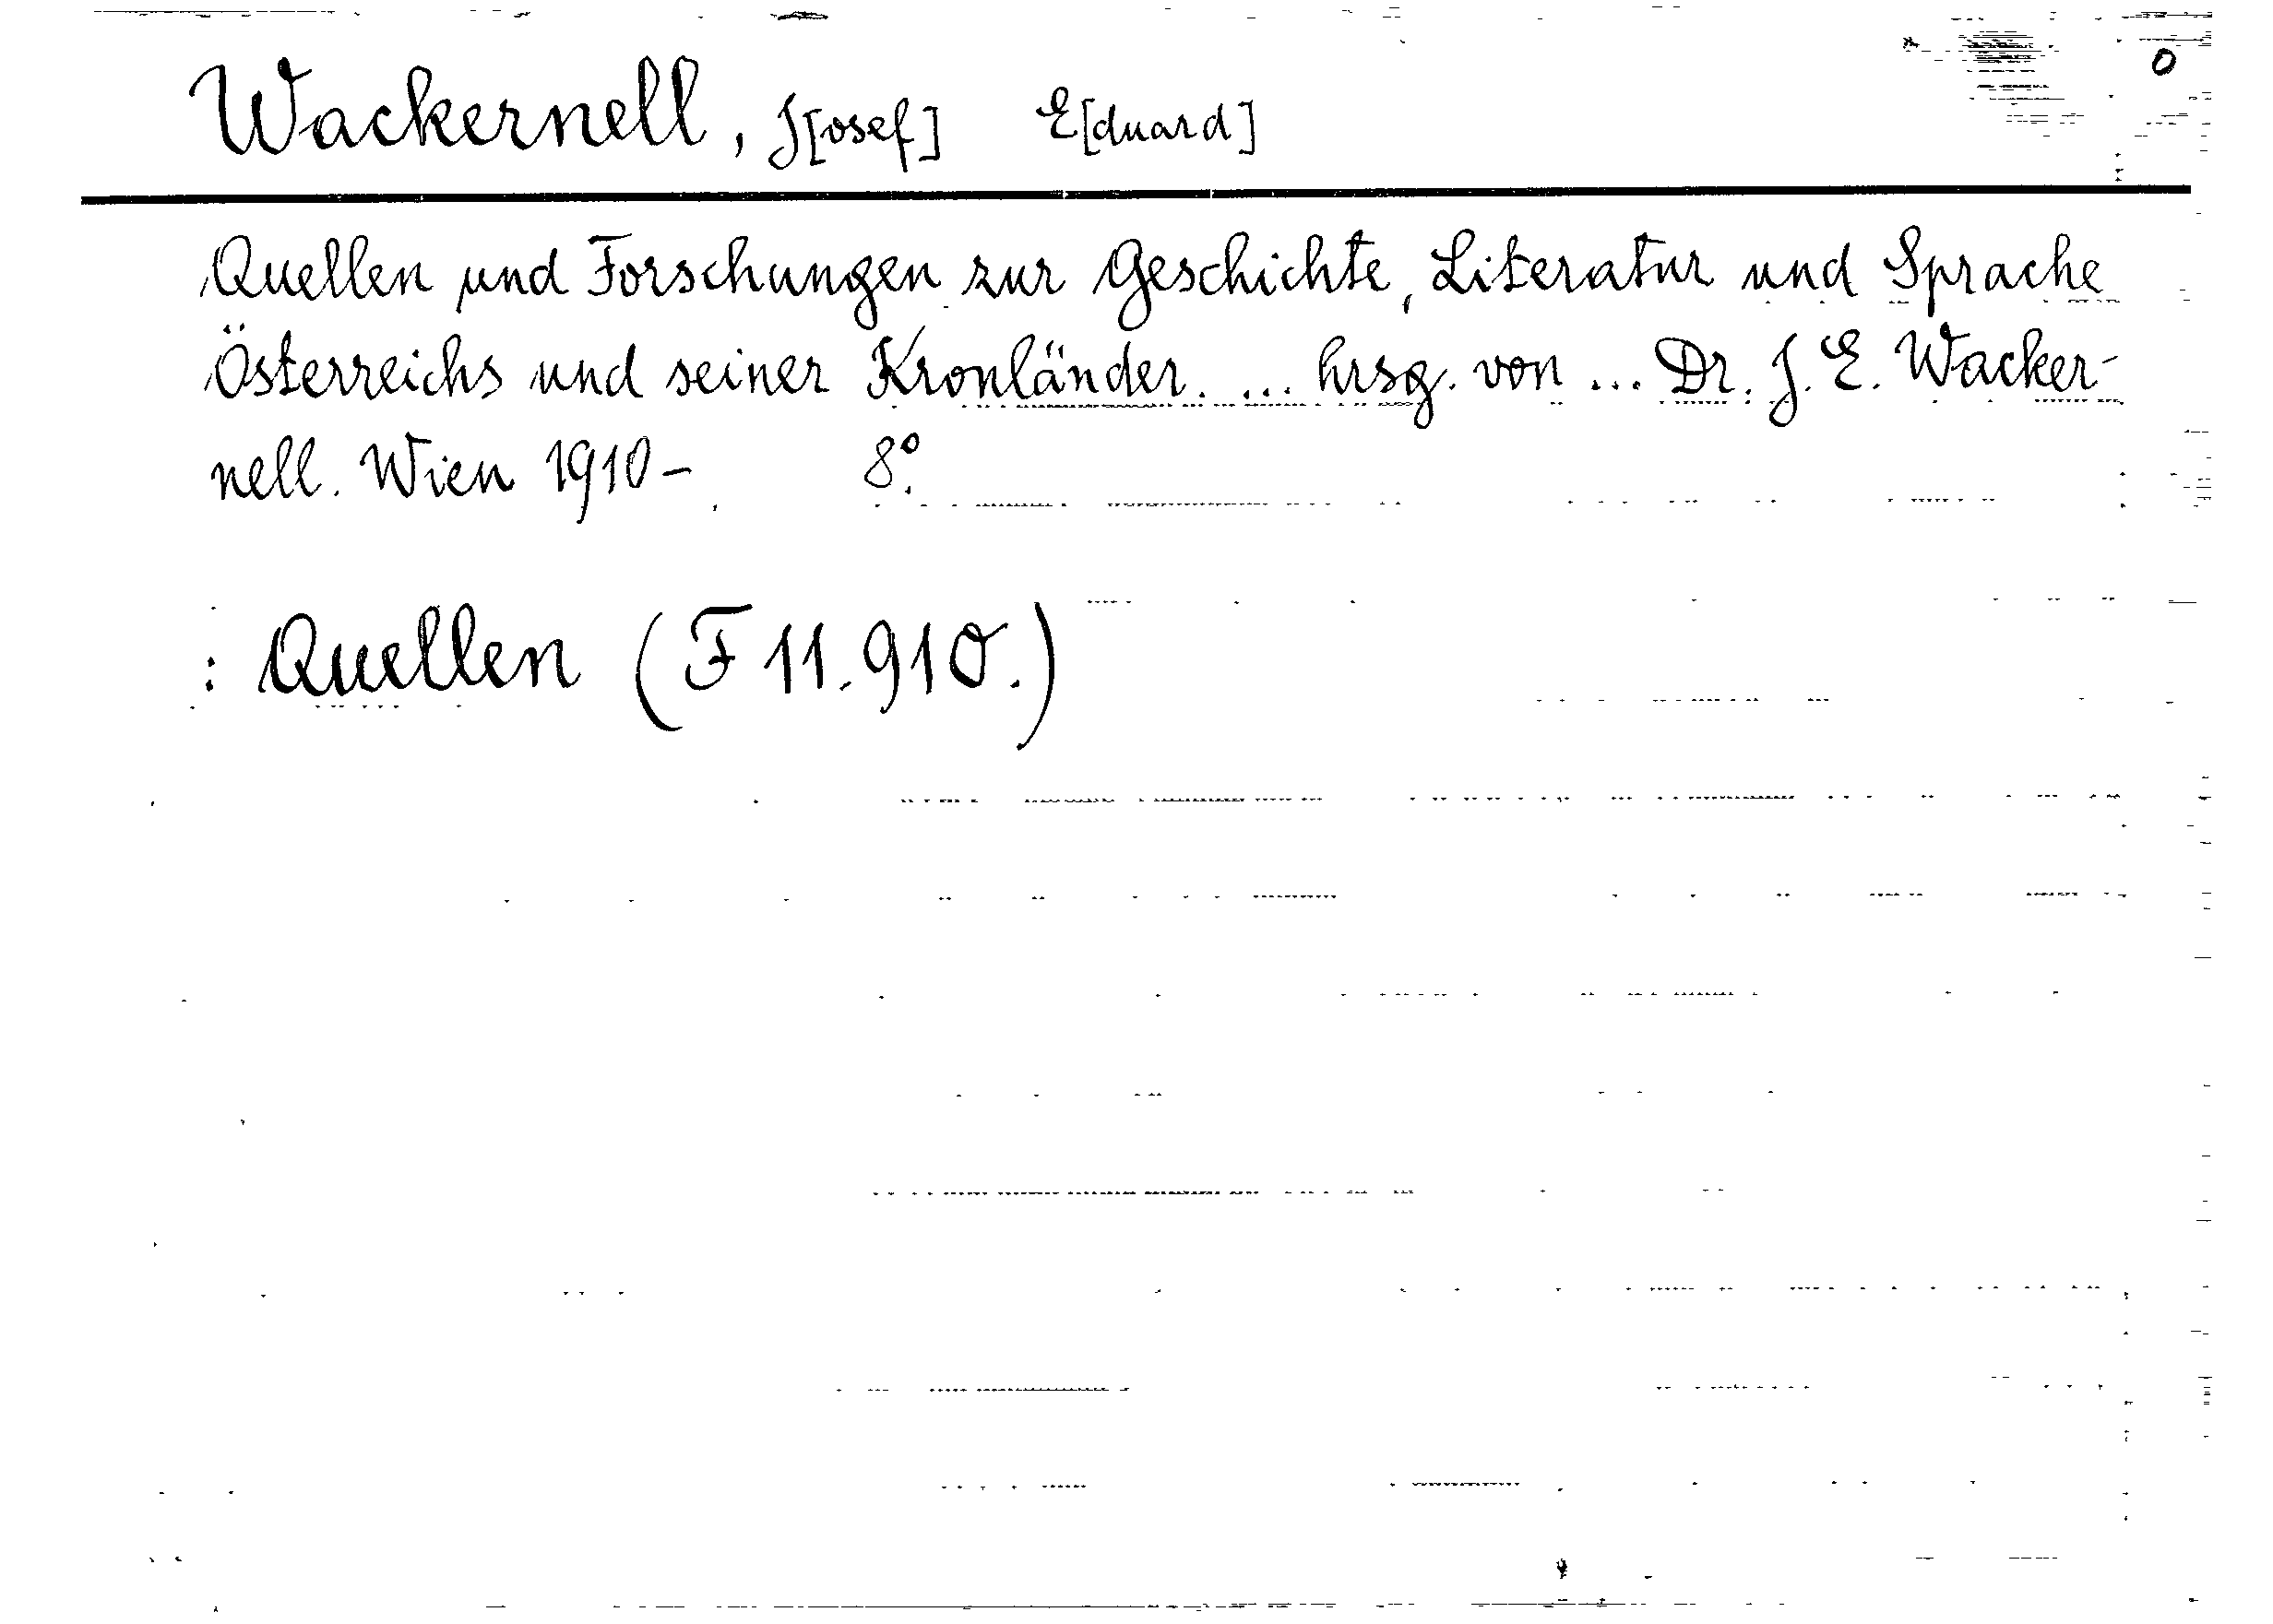 0
Wackernell, J[osef] E[duard]
Quellen und Forschungen zur Geschichte, Literatur und Sprache
Österreichs und seiner Kronländer. ... hrsg. von ... Dr. J. E. Wacker-
nell. Wien 1910-. 8°.
: Quellen (F 11.910.)